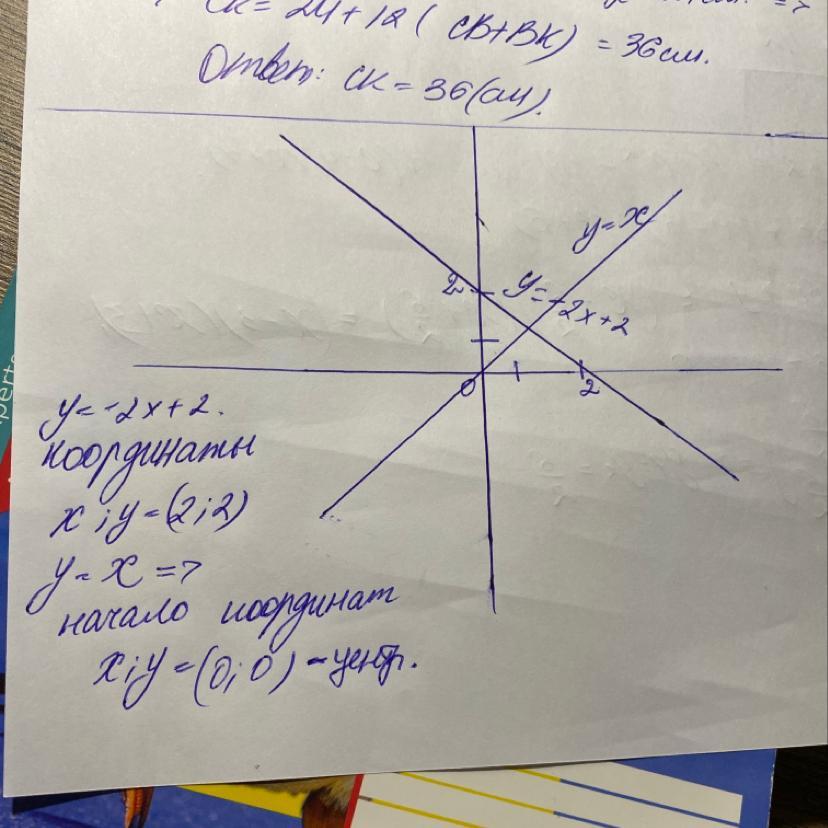 CK = 24 + 12 ( CB+BK) = 36 см.
Ответ: CK = 36 (см).
y = x
2
y = -2x+2
0
2
y = -2x + 2.
координаты
x ; y = (2 ; 2)
y = x =>
начало координат
x ; y = (0 ; 0) - центр.